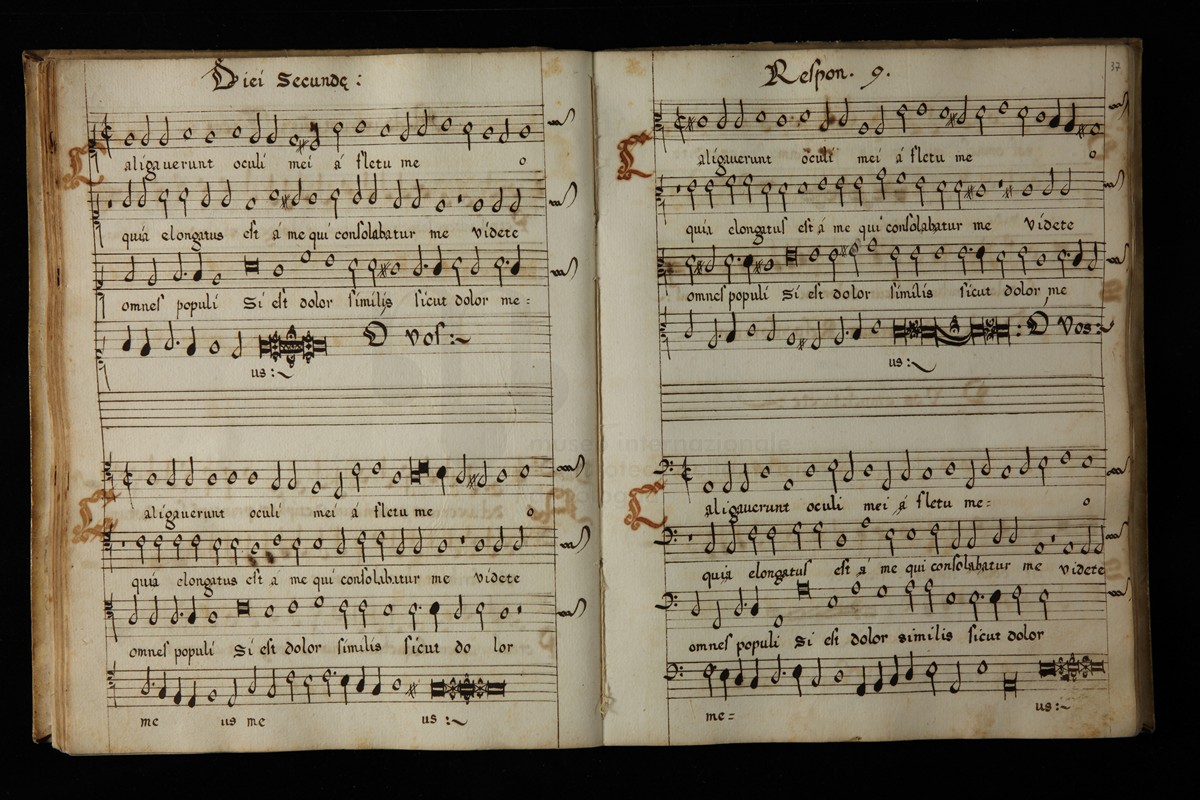 Diei Secundę:
Caligauerunt oculi mei á fletu me o
quia elongatus est á me qui consolabatur me videte
omnes populi Si est dolor similis sicut dolor me:
us: O vos:
Caligauerunt oculi mei á fletu me o
quia elongatus est á me qui consolabatur me videte
omnes populi Si est dolor similis sicut do lor
me us me us:
Respon. 9.
37
Caligauerunt oculi mei á fletu me o
quia elongatus est á me qui consolabatur me videte
omnes populi Si est dolor similis sicut dolor me
us: O Vos:
Caligauerunt oculi mei á fletu me= o
quia elongatus est á me qui consolabatur me videte
omnes populi Si est dolor similis sicut dolor
me= us:
museo internazionale